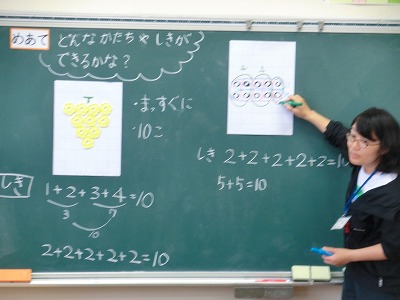 めあて
どんなかたちや しきが
できるかな?
・まっすぐに
・10こ
しき
1+2+3+4=10
3
7
10
2+2+2+2+2=10
しき 2+2+2+2+2=10
5+5=10